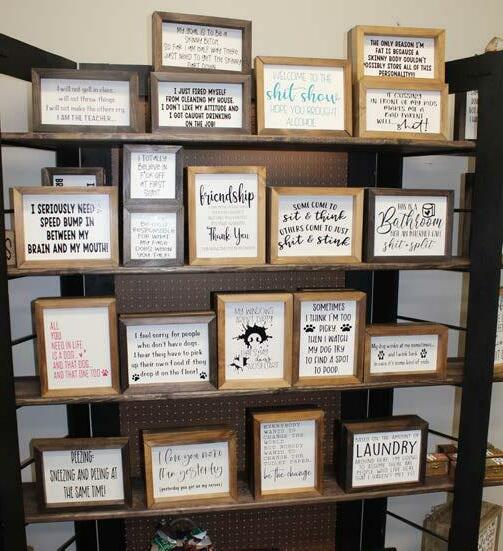 MY GOAL IS TO BE A
SKINNY BITCH,
SO FAR I AM HALF WAY THERE
JUST NEED TO GET THE SKINNY
PART DOWN.
THE ONLY REASON I'M
FAT IS BECAUSE A
SKINNY BODY COULDN'T
POSSIBLY STORE ALL OF THIS
PERSONALITY!!
I will not yell in class,
will not throw things
I will not make the others cry,
I AM THE TEACHER...
I JUST FIRED MYSELF
FROM CLEANING MY HOUSE.
I DON'T LIKE MY ATTITUDE AND
I GOT CAUGHT DRINKING
ON THE JOB!
WELCOME TO THE
shit show
HOPE YOU BROUGHT
ALCOHOL
IF CUSSING
IN FRONT OF MY KIDS
MAKES ME A
BAD PARENT
WELL
shit!
I TOTALLY
BELIEVE IN
F*CK OFF AT
FIRST SIGHT
I SERIOUSLY NEED A
SPEED BUMP IN
BETWEEN MY
BRAIN AND MY MOUTH!
RESPONSIBLE
FOR WHAT
MY FACE
DOES WHEN
YOU TALK
friendship
Thank You
SOME COME TO
sit & think
OTHERS COME TO JUST
shit & stink
THIS IS A
Bathroom
NOT AN INTERNET CAFE
shit+split
ALL
YOU
NEED IN LIFE
IS A DOG...
AND THAT DOG...
AND THAT ONE TOO
I feel sorry for people
who don't have dogs.
I hear they have to pick
up their own food if they
drop it on the floor!
MY WINDOWS
AREN'T DIRTY
THAT'S MY
DOG'S
NOSE ART
SOMETIMES
I THINK I'M TOO
PICKY,
THEN I WATCH
MY DOG TRY
TO FIND A SPOT
TO POOP.
My dog winks at me sometimes...
and I wink back
in case it's some kind of code.
PEEZING:
SNEEZING AND PEEING AT
THE SAME TIME!
I love you more
than yesterday
(yesterday you got on my nerves)
EVERYBODY
WANTS TO
CHANGE THE
WORLD
BUT NOBODY
WANTS TO
CHANGE THE
TOILET PAPER.
be the change
BASED ON THE AMOUNT OF
LAUNDRY